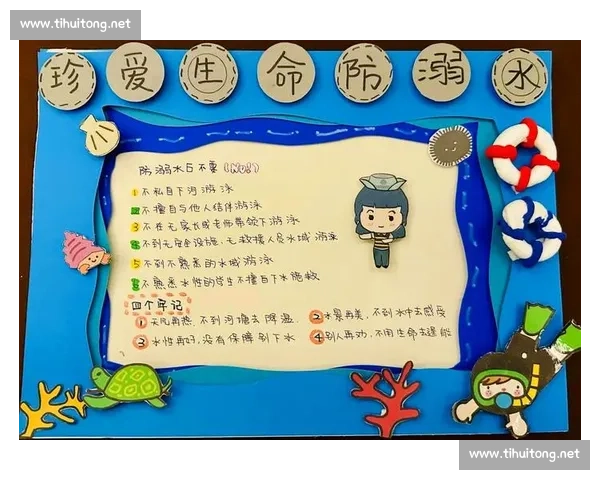 www.tihuitong.net
珍爱生命防溺水
防溺水6不要(No!)
1不私自下河游泳
2不擅自与他人结伴游泳
3不在无家长或老师带领下游泳
4不到无安全设施、无救援人员水域游泳
5不到不熟悉的水域游泳
6不熟悉水性的学生不擅自下水施救
四个牢记
①天气再热,不到河塘去降温. ②水景再美,不到水中去感受
③水性再好,没有保障别下水 ④别人再劝,不用生命去逞能
www.tihuitong.net